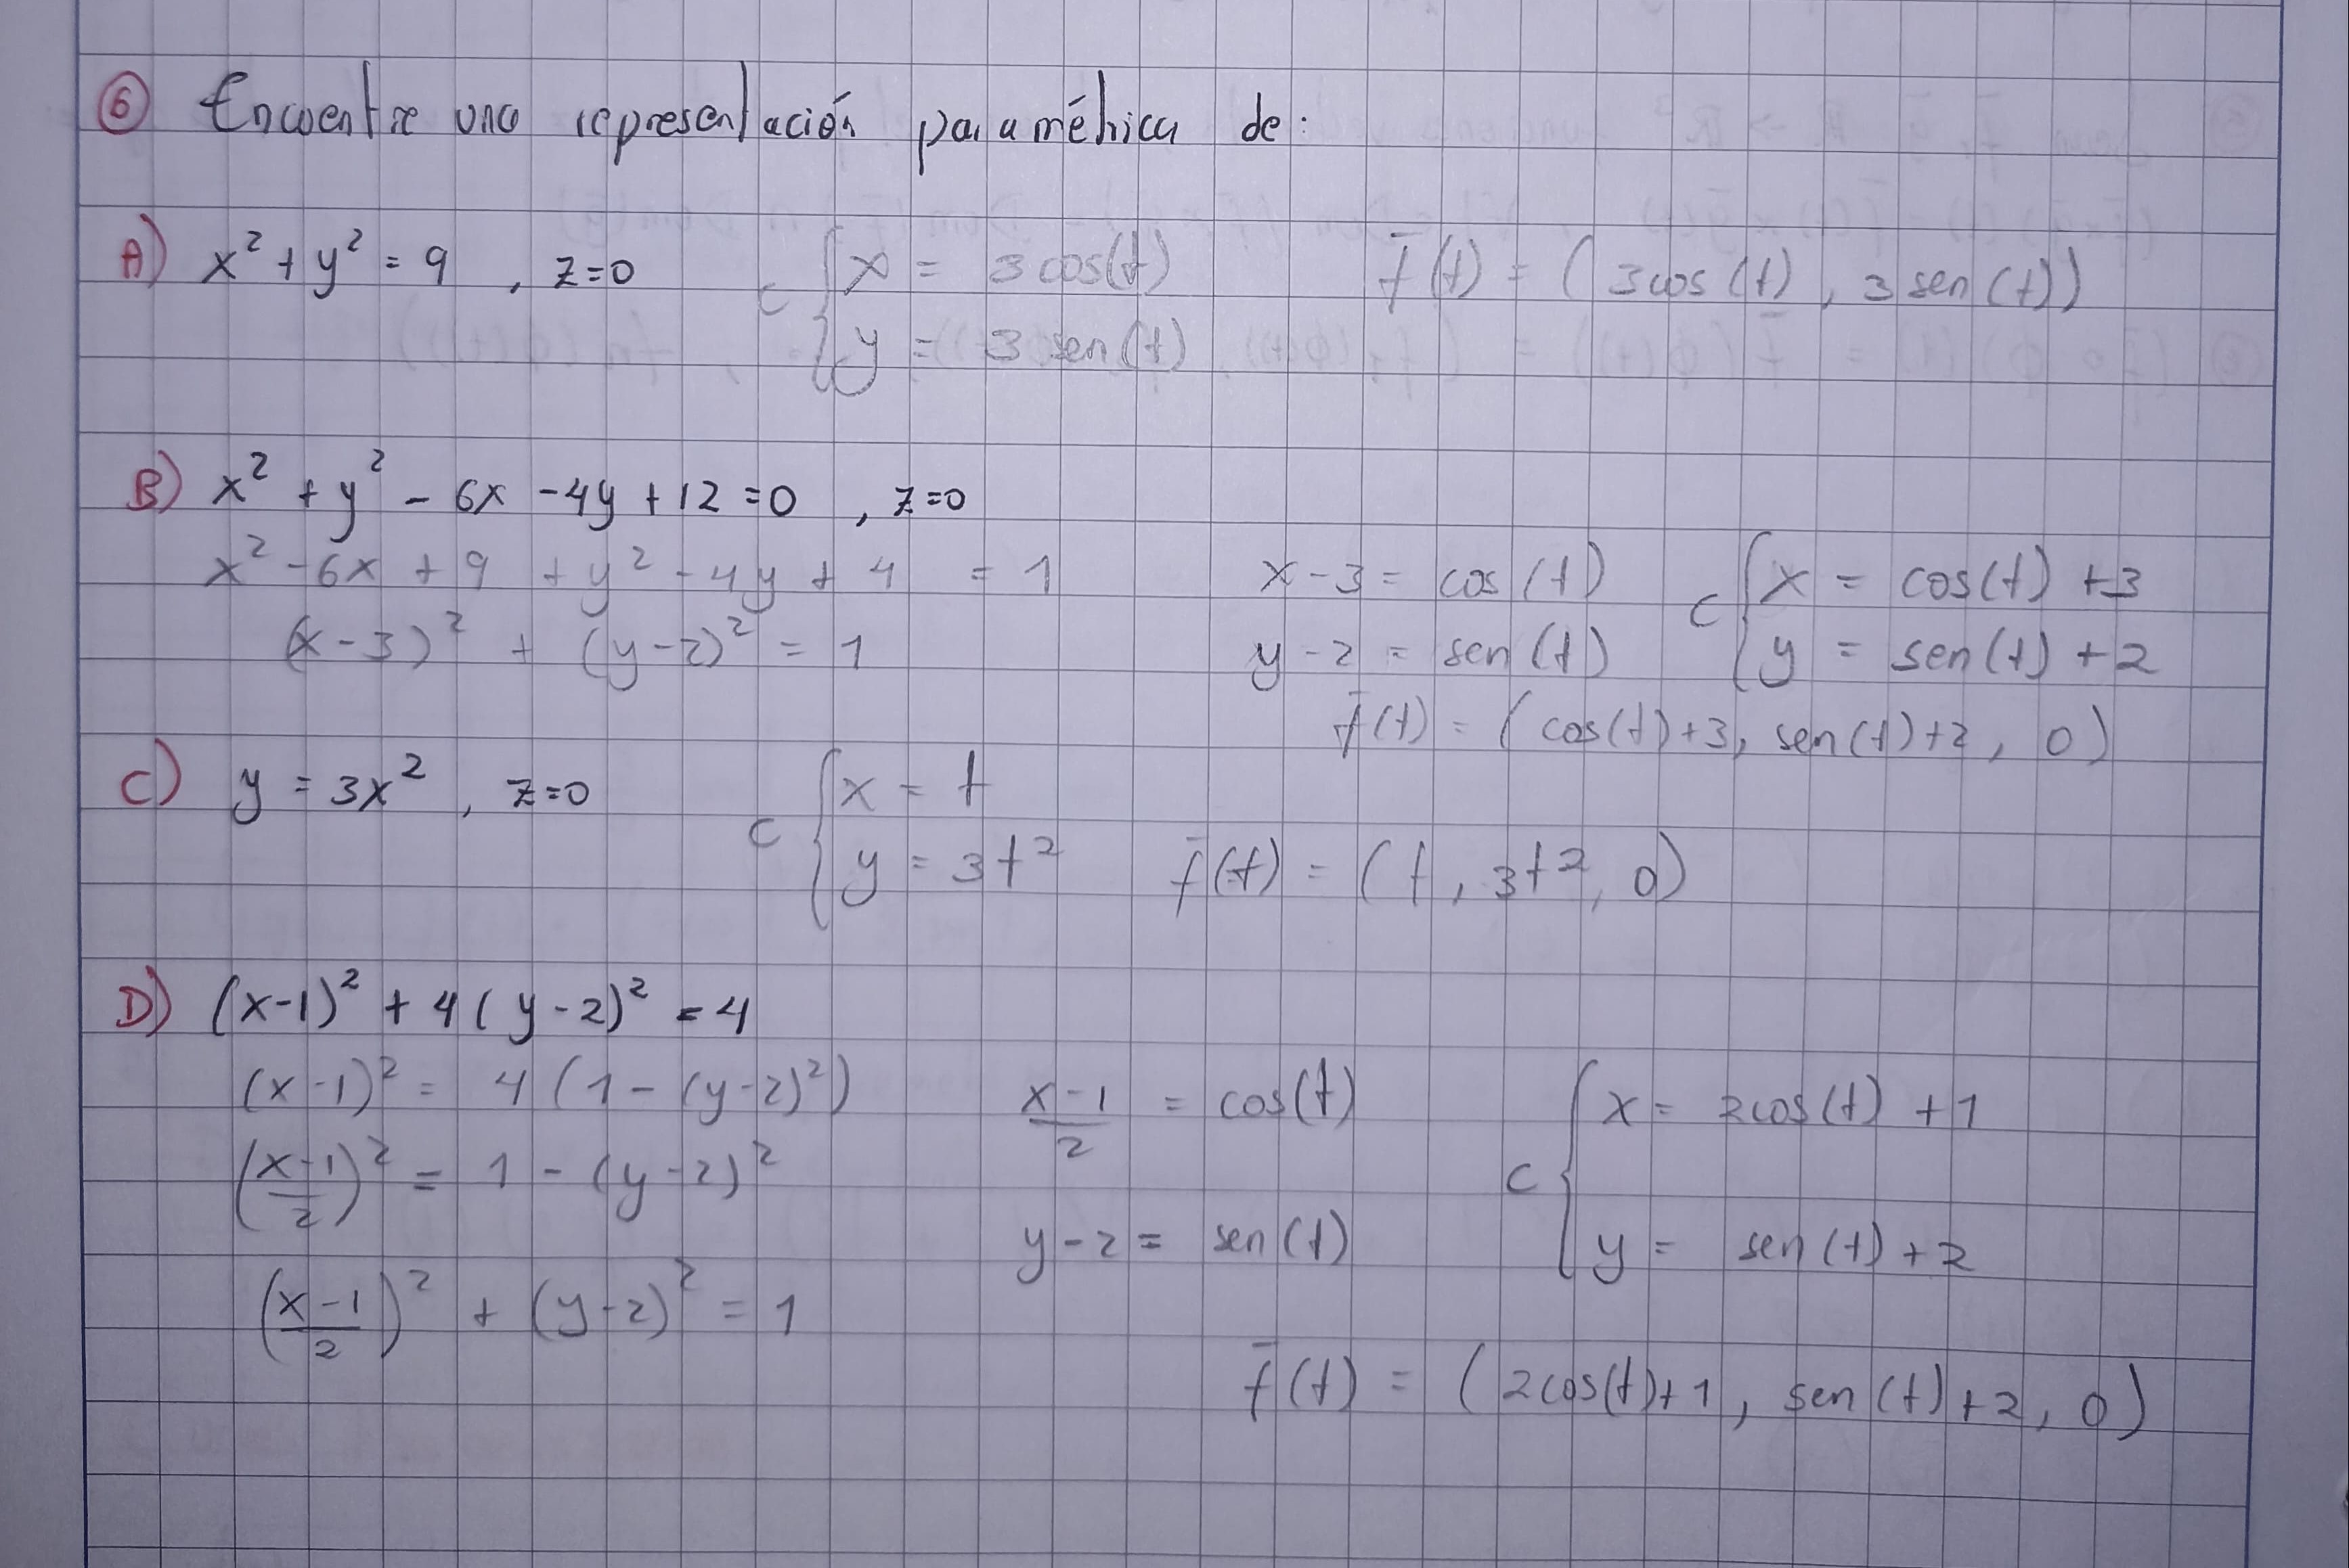 6 Encuentre una representación paramétrica de:
A) x² + y² = 9 , z=0
C { x = 3 cos(t)
y = 3 sen(t)
f̄(t) = (3cos(t), 3 sen(t))
B) x² + y² - 6x - 4y + 12 = 0 , z=0
x² - 6x + 9 + y² - 4y + 4 = 1
(x-3)² + (y-2)² = 1
x-3 = cos(t)
y-2 = sen(t)
C { x = cos(t) +3
y = sen(t) +2
f̄(t) = (cos(t)+3, sen(t)+2, 0)
C) y = 3x² , z=0
C { x = t
y = 3t²
f̄(t) = (t, 3t², 0)
D) (x-1)² + 4(y-2)² = 4
(x-1)² = 4(1-(y-2)²)
((x-1)/2)² = 1-(y-2)²
((x-1)/2)² + (y-2)² = 1
(x-1)/2 = cos(t)
y-2 = sen(t)
C { x = 2cos(t) +1
y = sen(t) +2
f̄(t) = (2cos(t)+1, sen(t)+2, 0)